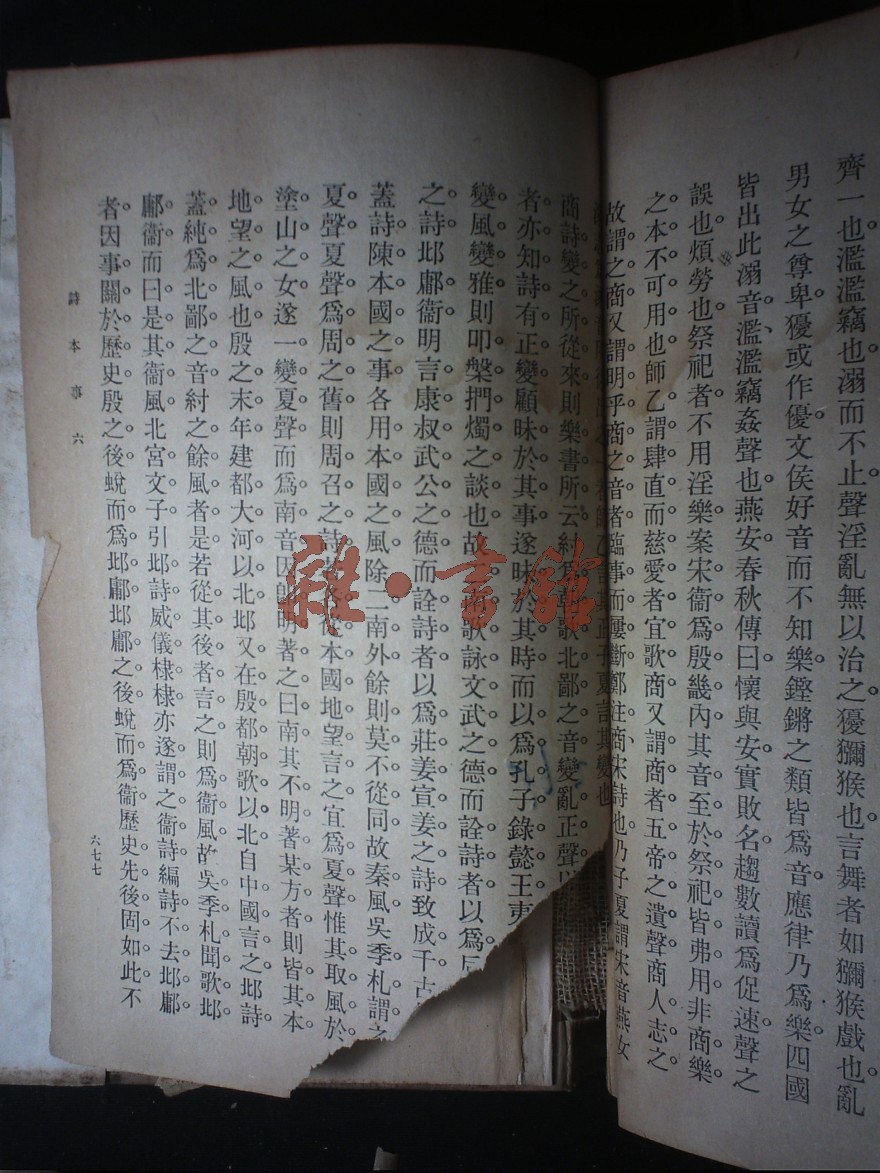 齊一也濫濫竊也溺而不止聲淫亂無以治之獶獼猴也言舞者如獼猴戲也亂
男女之尊卑獶或作優文侯好音而不知樂鏗鏘之類皆爲音應律乃爲樂四國
皆出此溺音濫濫竊姦聲也燕安春秋傳曰懷與安實敗名趨數讀爲促速聲之
誤也煩勞也祭祀者不用淫樂案宋衞爲殷畿內其音至於祭祀皆弗用非商樂
之本不可用也師乙謂肆直而慈愛者宜歌商又謂商者五帝之遺聲商人志之
故謂之商又謂明乎商之音者臨事而屢斷鄭注商宋詩也乃子夏謂宋音燕女
子夏言其變也
商詩變之所從來則樂書所云紂爲朝歌北鄙之音變亂正聲
者亦知詩有正變顧昧於其事遂昧於其時而以爲孔子錄懿王
變風變雅則叩槃捫燭之談也故二南歌詠文武之德而詮詩者以爲
之詩邶鄘衞明言康叔武公之德而詮詩者以爲莊姜宣姜之詩致成千古
蓋詩陳本國之事各用本國之風除二南外餘則莫不從同故秦風吳季札謂之
夏聲夏聲爲周之舊則周召之詩本國地望言之宜爲夏聲惟其取風於
塗山之女遂一變夏聲而爲南音因明著之曰南其不明著某方者則皆其本
地望之風也殷之末年建都大河以北邶又在殷都朝歌以北自中國言之邶詩
蓋純爲北鄙之音紂之餘風者是若從其後者言之則爲衞風故吳季札聞歌邶
鄘衞而曰是其衞風北宮文子引邶詩威儀棣棣亦遂謂之衞詩編詩不去邶鄘
者因事關於歷史殷之後蛻而爲邶鄘邶鄘之後蛻而爲衞歷史先後固如此不
詩本事 六
六七七
雜·書館